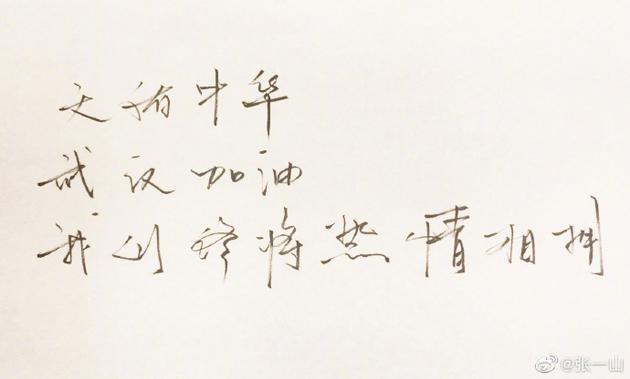 天祐中华
武汉加油
我们终将热情相拥
@张一山